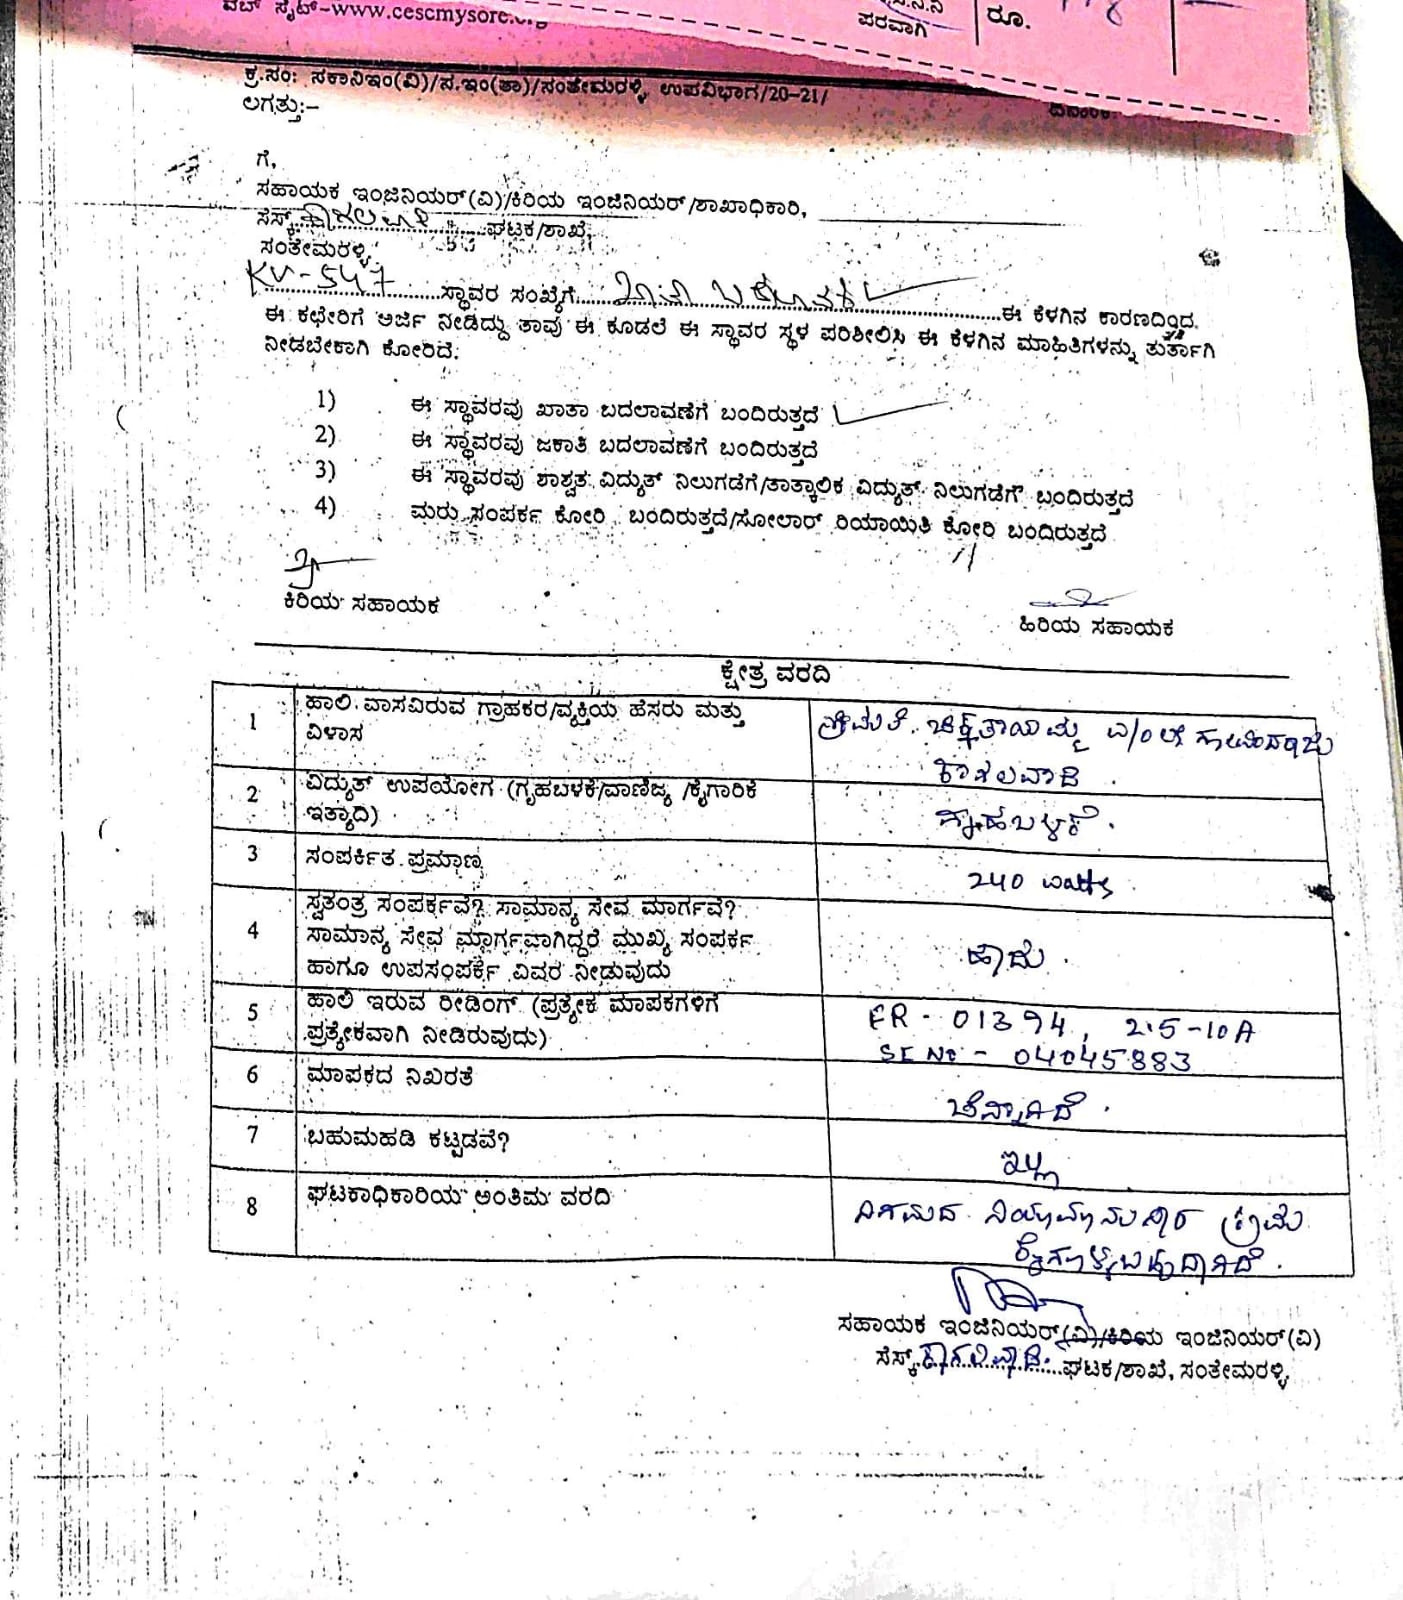 ವೆಬ್ ಸೈಟ್-www.cescmysore.org
ಪರವಾಗಿ
ರೂ.
ಕ್ರ.ಸಂ: ಸಕಾನಿಇಂ(ವಿ)/ಸ.ಇಂ(ತಾ)/ಸಂತೇಮರಳ್ಳಿ ಉಪವಿಭಾಗ/20-21/
ದಿನಾಂಕ:
ಲಗತ್ತು:-
ಗೆ,
ಸಹಾಯಕ ಇಂಜಿನಿಯರ್(ವಿ)/ಕಿರಿಯ ಇಂಜಿನಿಯರ್/ಶಾಖಾಧಿಕಾರಿ,
ಸೆಸ್ಕ್ ಕಾಗಲವಾಡಿ ಘಟಕ/ಶಾಖೆ,
ಸಂತೇಮರಳ್ಳಿ
KV-547 ಸ್ಥಾವರ ಸಂಖ್ಯೆಗೆ ಖಾತಾ ಬದಲಾವಣೆ ಈ ಕೆಳಗಿನ ಕಾರಣದಿಂದ
ಈ ಕಛೇರಿಗೆ ಅರ್ಜಿ ನೀಡಿದ್ದು ತಾವು ಈ ಕೂಡಲೆ ಈ ಸ್ಥಾವರ ಸ್ಥಳ ಪರಿಶೀಲಿಸಿ ಈ ಕೆಳಗಿನ ಮಾಹಿತಿಗಳನ್ನು ತುರ್ತಾಗಿ
ನೀಡಬೇಕಾಗಿ ಕೋರಿದೆ.
1) ಈ ಸ್ಥಾವರವು ಖಾತಾ ಬದಲಾವಣೆಗೆ ಬಂದಿರುತ್ತದೆ
2) ಈ ಸ್ಥಾವರವು ಜಕಾತಿ ಬದಲಾವಣೆಗೆ ಬಂದಿರುತ್ತದೆ
3) ಈ ಸ್ಥಾವರವು ಶಾಶ್ವತ ವಿದ್ಯುತ್ ನಿಲುಗಡೆಗೆ/ತಾತ್ಕಾಲಿಕ ವಿದ್ಯುತ್ ನಿಲುಗಡೆಗೆ ಬಂದಿರುತ್ತದೆ
4) ಮರು ಸಂಪರ್ಕ ಕೋರಿ ಬಂದಿರುತ್ತದೆ/ಸೋಲಾರ್ ರಿಯಾಯಿತಿ ಕೋರಿ ಬಂದಿರುತ್ತದೆ
ಕಿರಿಯ ಸಹಾಯಕ
ಹಿರಿಯ ಸಹಾಯಕ
ಕ್ಷೇತ್ರ ವರದಿ
1 ಹಾಲಿ ವಾಸವಿರುವ ಗ್ರಾಹಕರ/ವ್ಯಕ್ತಿಯ ಹೆಸರು ಮತ್ತು
ವಿಳಾಸ
ಶ್ರೀಮತಿ. ಚಿಕ್ಕತಾಯಮ್ಮ
ಕಾಗಲವಾಡಿ
2 ವಿದ್ಯುತ್ ಉಪಯೋಗ (ಗೃಹಬಳಕೆ/ವಾಣಿಜ್ಯ /ಕೈಗಾರಿಕೆ
ಇತ್ಯಾದಿ)
ಗೃಹಬಳಕೆ.
3 ಸಂಪರ್ಕಿತ ಪ್ರಮಾಣ
240 watts.
4 ಸ್ವತಂತ್ರ ಸಂಪರ್ಕವೆ? ಸಾಮಾನ್ಯ ಸೇವ ಮಾರ್ಗವೆ?
ಸಾಮಾನ್ಯ ಸೇವ ಮಾರ್ಗವಾಗಿದ್ದರೆ ಮುಖ್ಯ ಸಂಪರ್ಕ
ಹಾಗೂ ಉಪಸಂಪರ್ಕ ವಿವರ ನೀಡುವುದು
ಹೌದು.
5 ಹಾಲಿ ಇರುವ ರೀಡಿಂಗ್ (ಪ್ರತ್ಯೇಕ ಮಾಪಕಗಳಿಗೆ
ಪ್ರತ್ಯೇಕವಾಗಿ ನೀಡಿರುವುದು)
FR - 01394, 2.5-10A
SL No - 04045883
6 ಮಾಪಕದ ನಿಖರತೆ
ಚೆನ್ನಾಗಿದೆ.
7 ಬಹುಮಹಡಿ ಕಟ್ಟಡವೆ?
ಇಲ್ಲ
8 ಘಟಕಾಧಿಕಾರಿಯ ಅಂತಿಮ ವರದಿ
ನಿಗಮದ ನಿಯಮಾನುಸಾರ ಕ್ರಮ
ಕೈಗೊಳ್ಳಬಹುದಾಗಿದೆ.
ಸಹಾಯಕ ಇಂಜಿನಿಯರ್(ವಿ)/ಕಿರಿಯ ಇಂಜಿನಿಯರ್(ವಿ)
ಸೆಸ್ಕ್ ಕಾಗಲವಾಡಿ ಘಟಕ/ಶಾಖೆ, ಸಂತೇಮರಳ್ಳಿ